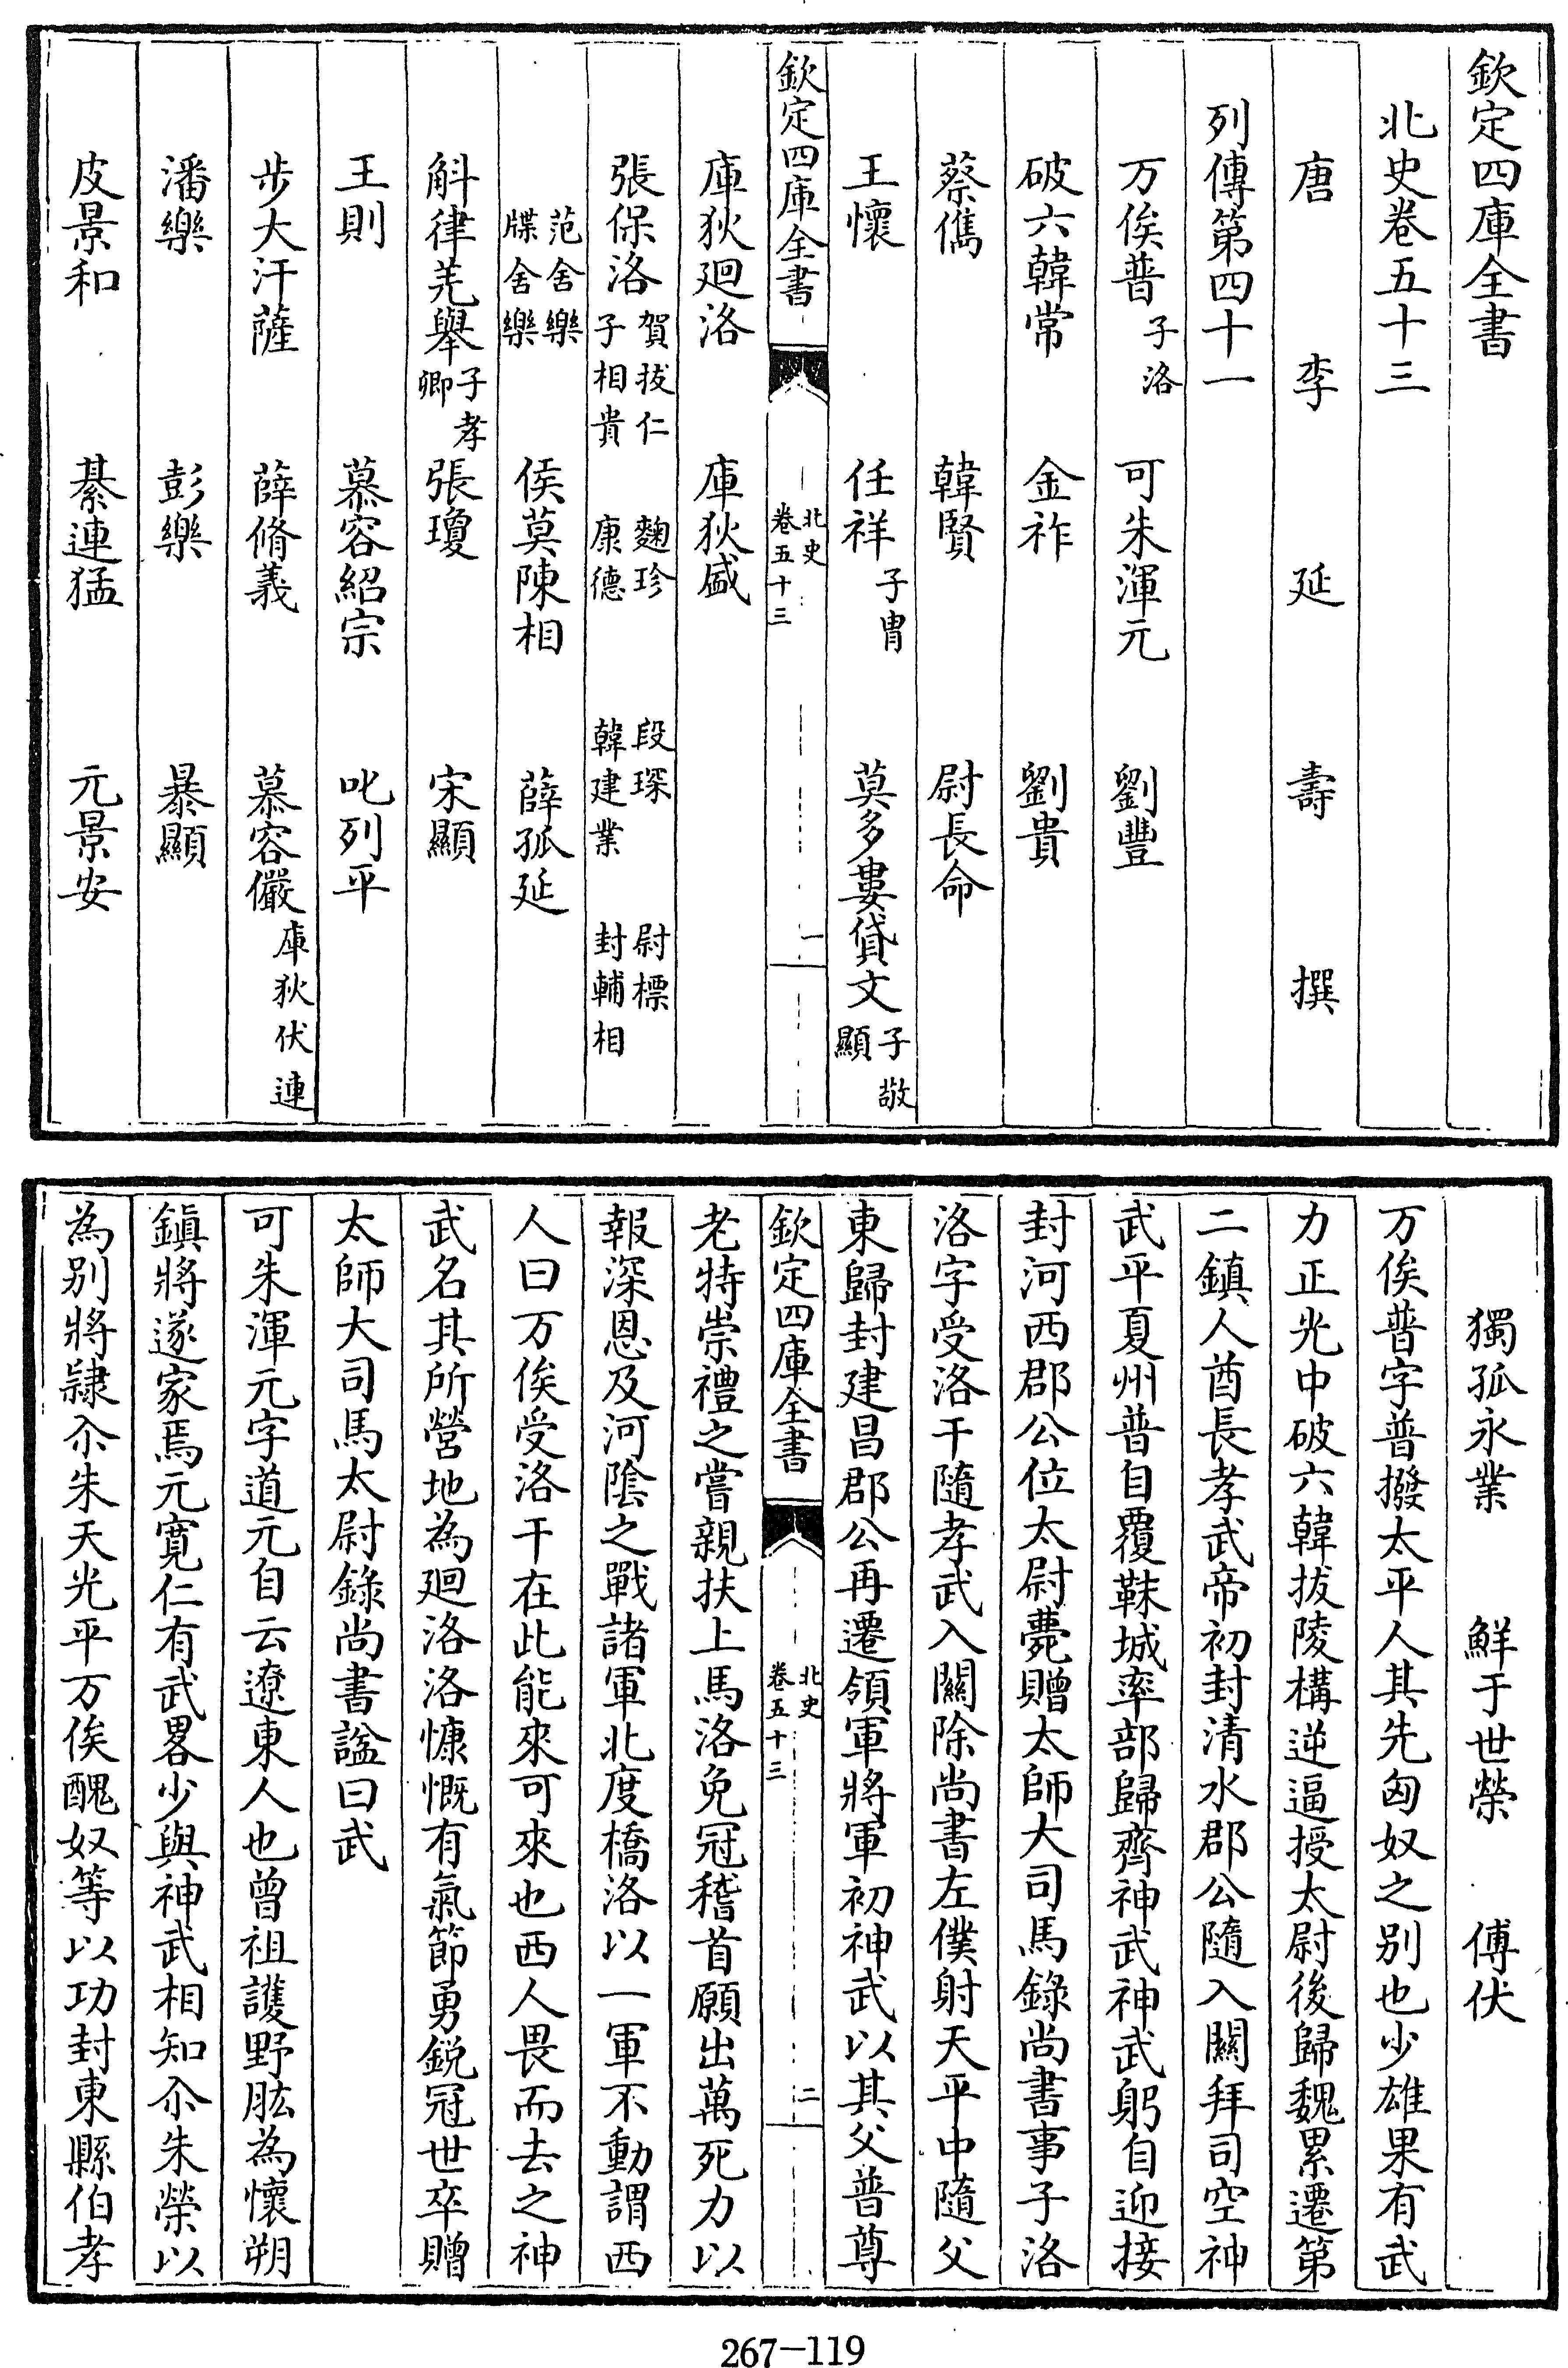 欽定四庫全書
北史卷五十三
唐 李 延 壽 撰
列傳第四十一
万俟普子洛 可朱渾元 劉豐
破六韓常 金祚 劉貴
蔡儁 韓賢 尉長命
王懷 任祥子胄 莫多婁貸文子敬顯
欽定四庫全書 北史卷五十三 一
庫狄廻洛 庫狄盛
張保洛賀拔仁 麴珍 段琛 尉標 子相貴 康德 韓建業 封輔相
范舍樂 牒舍樂 侯莫陳相 薛孤延
斛律羌舉子孝卿 張瓊 宋顯
王則 慕容紹宗 叱列平
步大汗薩 薛脩義 慕容儼庫狄伏連
潘樂 彭樂 暴顯
皮景和 綦連猛 元景安
獨孤永業 鮮于世榮 傅伏
万俟普字普撥太平人其先匈奴之别也少雄果有武
力正光中破六韓拔陵構逆逼授太尉後歸魏累遷第
二鎮人酋長孝武帝初封清水郡公隨入關拜司空神
武平夏州普自覆靺城率部歸齊神武神武躬自迎接
封河西郡公位太尉薨贈太師大司馬錄尚書事子洛
洛字受洛干隨孝武入關除尚書左僕射天平中隨父
東歸封建昌郡公再遷領軍將軍初神武以其父普尊
欽定四庫全書 北史卷五十三 二
老特崇禮之嘗親扶上馬洛免冠稽首願出萬死力以
報深恩及河陰之戰諸軍北度橋洛以一軍不動謂西
人曰万俟受洛干在此能來可來也西人畏而去之神
武名其所營地為廻洛洛慷慨有氣節勇銳冠世卒贈
太師大司馬太尉錄尚書謚曰武
可朱渾元字道元自云遼東人也曾祖護野肱為懷朔
鎮將遂家焉元寬仁有武畧少與神武相知尒朱榮以
為别將隷尒朱天光平万俟醜奴等以功封東縣伯孝
267-119